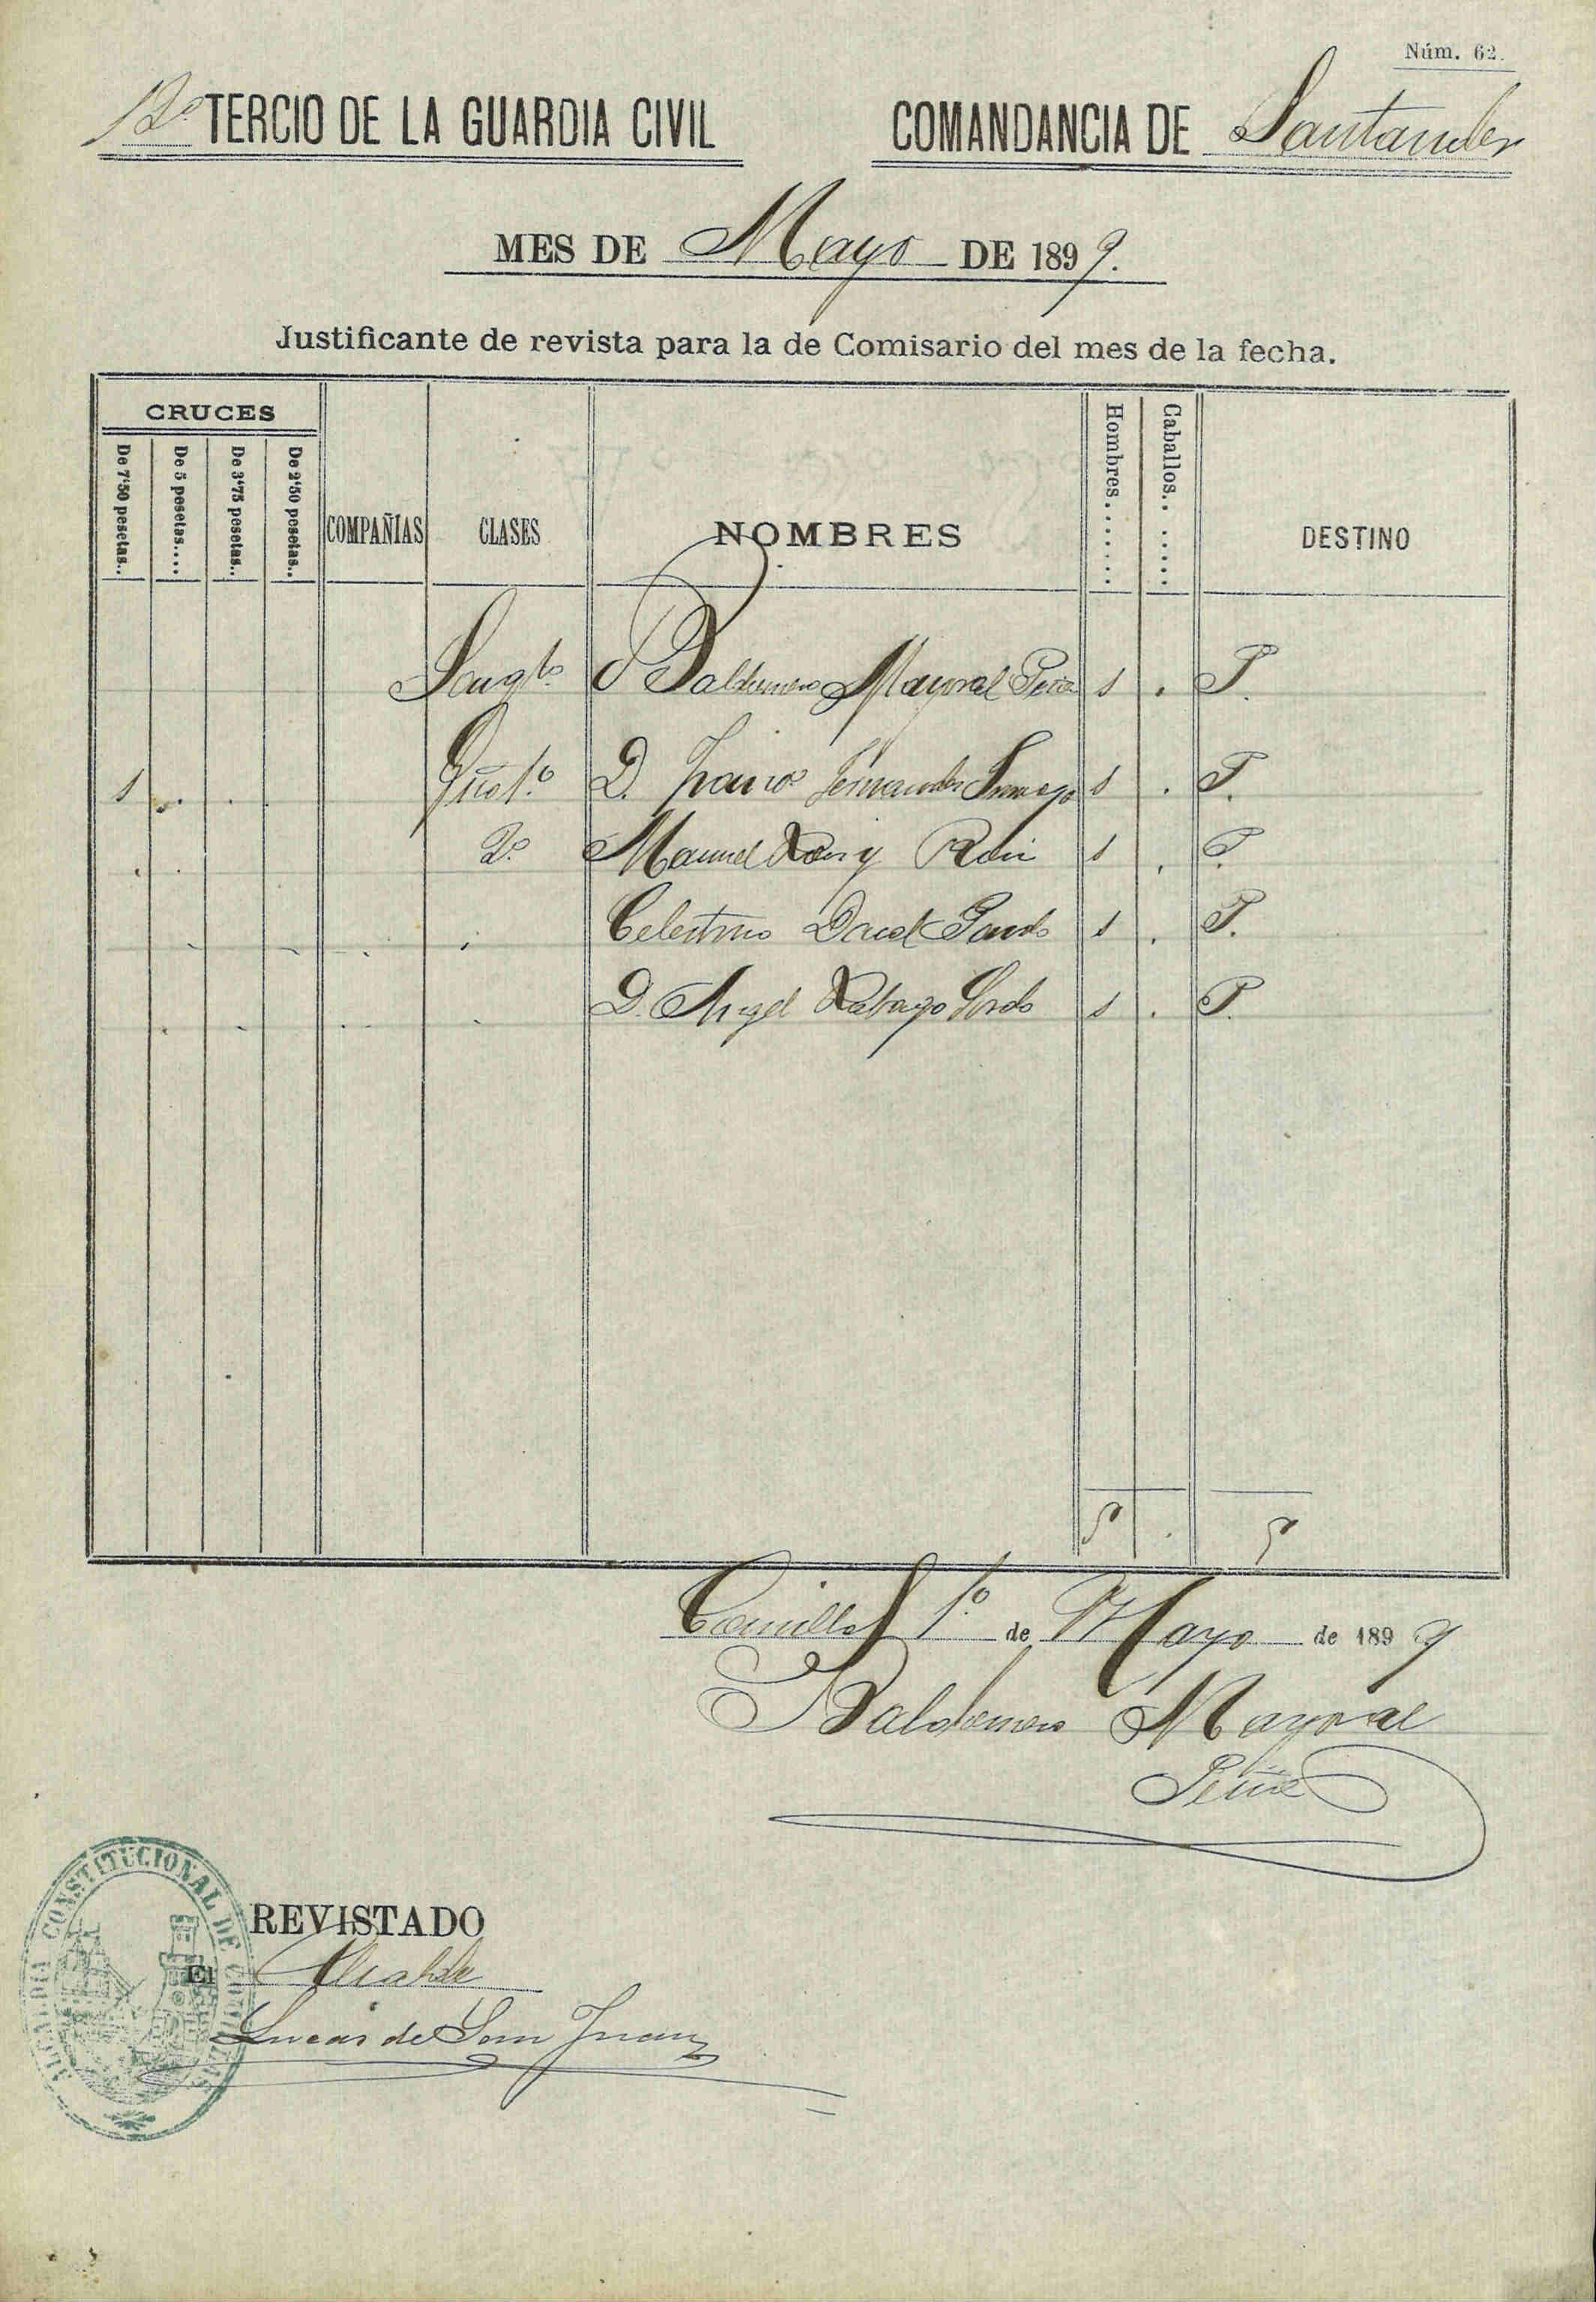 Núm. 62.
12º TERCIO DE LA GUARDIA CIVIL COMANDANCIA DE Santander
MES DE Mayo DE 1899.
Justificante de revista para la de Comisario del mes de la fecha.
CRUCES
De 7'50 pesetas..
De 5 pesetas....
De 3'75 pesetas..
De 2'50 pesetas..
COMPAÑIAS
CLASES
NOMBRES
Hombres.......
Caballos.......
DESTINO
Sargtº Baldomero Mayoral Peña 1 . P.
1 . . . D. Franco Fernandez 1 . P.
2º Manuel Ruiz 1 . P.
Celestino Pardo 1 . P.
D. Angel Rabago Sordo 1 . P.
5 . 5
Comillas 1º de Mayo de 1899
Baldomero Mayoral
Peña
REVISTADO
El Alcalde
Lucas de San Juan
ALCALDIA CONSTITUCIONAL DE COMILLAS